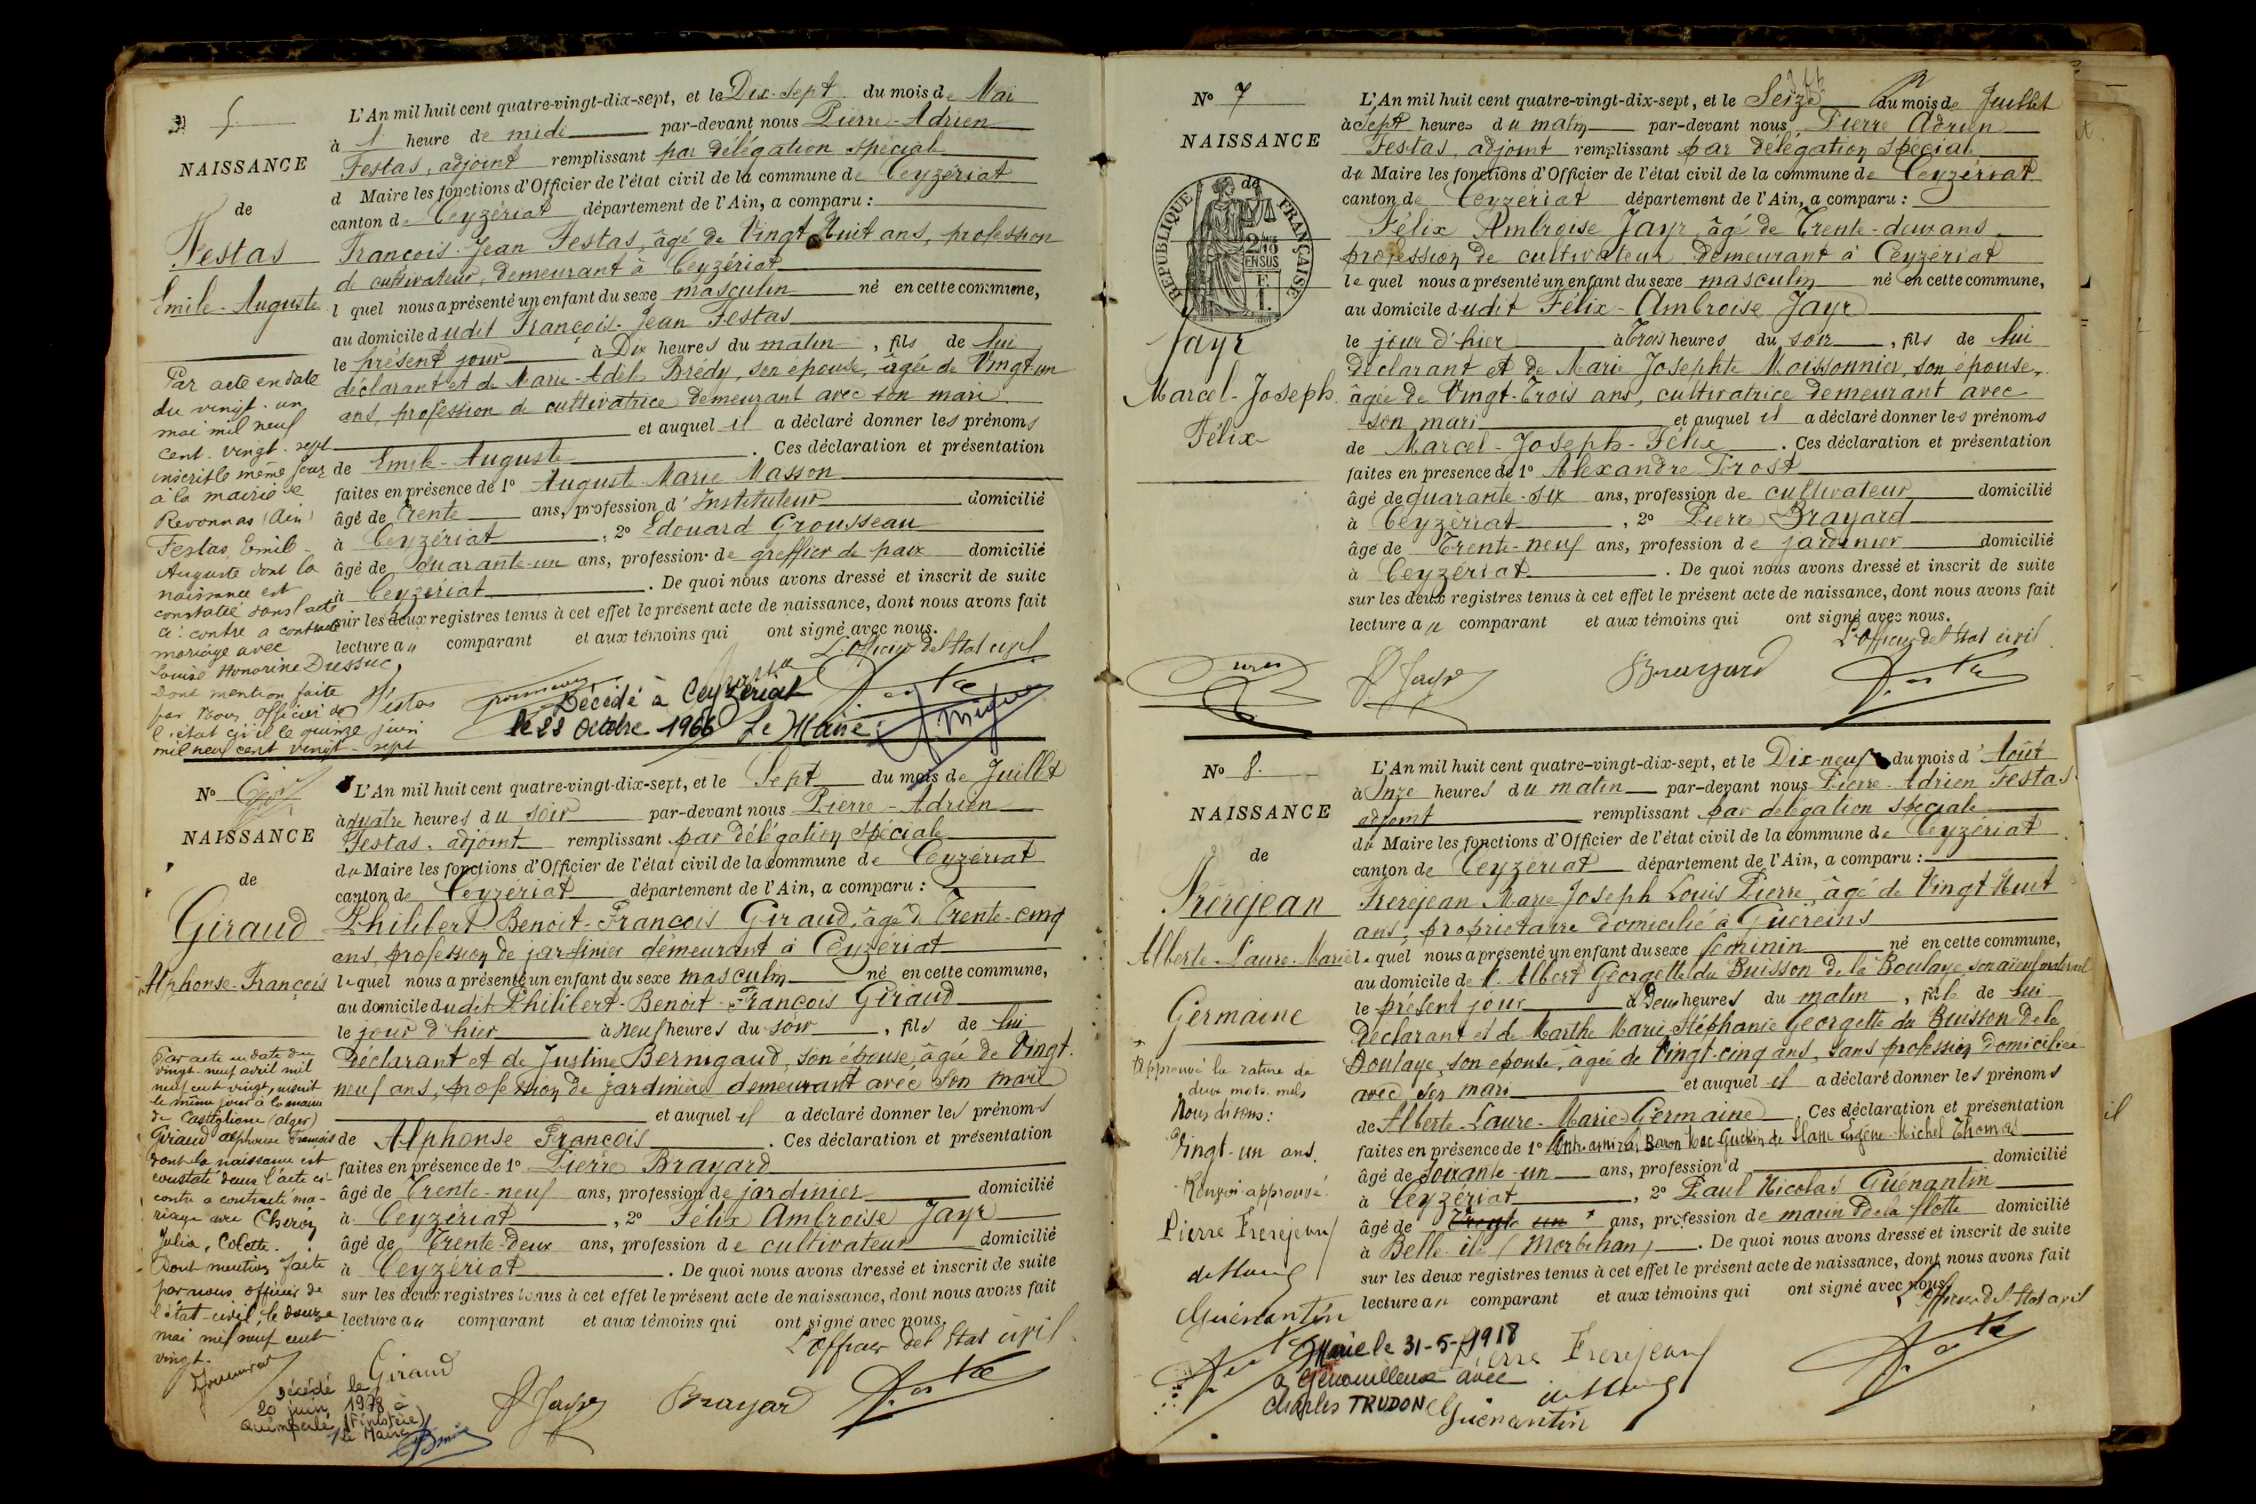 5
NAISSANCE
de
Festas
Emile-Auguste
Par acte en date
du vingt-un
mai mil neuf
cent-vingt-sept
inscrit le même jour
à la mairie de
Revonnas (Ain)
Festas Emile-
Auguste dont la
naissance est
constatée dans l'acte
ci-contre a contracté
mariage avec
Louise Honorine Dussuc,
Dont mention faite
par Nous Officier de
l'état civil le quinze juin
mil neuf cent vingt-sept
L'An mil huit cent quatre-vingt-dix-sept, et le Dix-Sept du mois de Mai
à 1 heure de midi par-devant nous Pierre-Adrien
Festas, adjoint remplissant par délégation spécial
d Maire les fonctions d'Officier de l'état civil de la commune de Ceyzériat
canton de Ceyzériat département de l'Ain, a comparu :
François-Jean Festas, âgé de Vingt Huit ans, profession
de cultivateur, demeurant à Ceyzériat
l quel nous a présenté un enfant du sexe masculin né en cette commune,
au domicile dudit François-Jean Festas
le présent jour à Dix heures du matin, fils de lui
déclarant et de Marie-Adèle Brédy, son épouse, âgée de Vingt-un
ans, profession de cultivatrice demeurant avec son mari
et auquel il a déclaré donner les prénoms
de Emile-Auguste. Ces déclaration et présentation
faites en présence de 1° Auguste Marie Masson
âgé de Trente ans, profession d'Instituteur domicilié
à Ceyzériat, 2° Edouard Grousseau
âgé de quarante-un ans, profession de greffier de paix domicilié
à Ceyzériat. De quoi nous avons dressé et inscrit de suite
sur les deux registres tenus à cet effet le présent acte de naissance, dont nous avons fait
lecture au comparant et aux témoins qui ont signé avec nous.
L'Officier de l'Etat civil
Festas
Décédé à Ceyzériat
le 22 Octobre 1966 Le Maire:
N°
NAISSANCE
de
Giraud
Alphonse-François
Par acte en date du
vingt-neuf avril mil
neuf cent vingt, inscrit
le même jour à la mairie
de Castiglione (Alger)
Giraud Alphonse François
dont la naissance est
constatée dans l'acte ci-
contre a contracté ma-
riage avec Cheron
Julia, Colette.
Dont mention faite
par nous, officier de
l'état-civil, le douze
mai mil neuf cent
vingt.
Décédé le
20 juin 1978 à
Quimperlé (Finistère)
Le Maire
L'An mil huit cent quatre-vingt-dix-sept, et le Sept du mois de Juillet
à quatre heures du soir par-devant nous Pierre-Adrien
Festas, adjoint remplissant par délégation spéciale
du Maire les fonctions d'Officier de l'état civil de la commune de Ceyzériat
canton de Ceyzériat département de l'Ain, a comparu :
Philibert Benoit-François Giraud, âgé de Trente-cinq
ans, profession de jardinier demeurant à Ceyzériat
lequel nous a présenté un enfant du sexe masculin né en cette commune,
au domicile dudit Philibert-Benoit-François Giraud
le jour d'hier à neuf heures du soir, fils de lui
Déclarant et de Justine Bernigaud, son épouse, âgée de Vingt-
neuf ans, profession de jardinière demeurant avec son mari
et auquel il a déclaré donner les prénoms
de Alphonse François. Ces déclaration et présentation
faites en présence de 1° Pierre Brayard
âgé de Trente-neuf ans, profession de jardinier domicilié
à Ceyzériat, 2° Félix Ambroise Jayr
âgé de Trente-Deux ans, profession de cultivateur domicilié
à Ceyzériat. De quoi nous avons dressé et inscrit de suite
sur les deux registres tenus à cet effet le présent acte de naissance, dont nous avons fait
lecture au comparant et aux témoins qui ont signé avec nous.
L'Officier de l'Etat civil
Giraud
F Jayr Brayard
N° 7
NAISSANCE
de
RÉPUBLIQUE FRANÇAISE
Jayr
Marcel-Joseph
Félix
L'An mil huit cent quatre-vingt-dix-sept, et le Seize du mois de Juillet
à Sept heures du matin par-devant nous Pierre Adrien
Festas, adjoint remplissant par délégation spécial
du Maire les fonctions d'Officier de l'état civil de la commune de Ceyzériat
canton de Ceyzériat département de l'Ain, a comparu :
Félix Ambroise Jayr, âgé de Trente-deux ans
profession de cultivateur demeurant à Ceyzériat
le quel nous a présenté un enfant du sexe masculin né en cette commune,
au domicile dudit Félix-Ambroise Jayr
le jour d'hier à Trois heures du soir, fils de lui
déclarant et de Marie Josephte Moissonnier, son épouse,
âgée de Vingt-Trois ans, cultivatrice demeurant avec
son mari et auquel il a déclaré donner les prénoms
de Marcel-Joseph-Félix. Ces déclaration et présentation
faites en présence de 1° Alexandre Prost
âgé de quarante-six ans, profession de cultivateur domicilié
à Ceyzériat, 2° Pierre Brayard
âgé de Trente-neuf ans, profession de jardinier domicilié
à Ceyzériat. De quoi nous avons dressé et inscrit de suite
sur les deux registres tenus à cet effet le présent acte de naissance, dont nous avons fait
lecture au comparant et aux témoins qui ont signé avec nous.
L'Officier de l'Etat civil
F Jayr Brayard
N° 8.
NAISSANCE
de
Frèrejean
Alberte-Laure-Marie
Germaine
Approuvé la rature de
deux mots nuls
Nous disons:
Vingt-un ans.
Renvoi approuvé.
Pierre Frerejean
de Slane
Guénantin
Marié le 31-5-1918
à Genouilleux avec
Charles TRUDON
L'An mil huit cent quatre-vingt-dix-sept, et le Dix-neuf du mois d'Août
à Onze heures du matin par-devant nous Pierre-Adrien Festas
adjoint remplissant par délégation spéciale
du Maire les fonctions d'Officier de l'état civil de la commune de Ceyzériat
canton de Ceyzériat département de l'Ain, a comparu :
Frerejean Marie Joseph Louis Pierre, âgé de Vingt Huit
ans, propriétaire domicilié à Guéreins
le quel nous a présenté un enfant du sexe féminin né en cette commune,
au domicile de M. Albert Georgette du Buisson De la Boulaye, son aïeul maternel
le présent jour à Deux heures du matin, fille de lui
Déclarant et de Marthe Marie Stéphanie Georgette du Buisson De la
Boulaye, son épouse, âgée de Vingt-cinq ans, sans profession domiciliée
avec son mari et auquel il a déclaré donner les prénoms
de Alberte-Laure-Marie-Germaine. Ces déclaration et présentation
faites en présence de 1° Contre-amiral Baron Mac Guckin de Slane Eugène-Michel Thomas
âgé de Soixante-un ans, profession d domicilié
à Ceyzériat, 2° Paul Nicolas Guénantin
âgé de Vingt un ans, profession de marin De la flotte domicilié
à Belle-ile (Morbihan). De quoi nous avons dressé et inscrit de suite
sur les deux registres tenus à cet effet le présent acte de naissance, dont nous avons fait
lecture au comparant et aux témoins qui ont signé avec nous.
L'Officier de l'Etat civil
Pierre Frerejean
de Slane
Guénantin